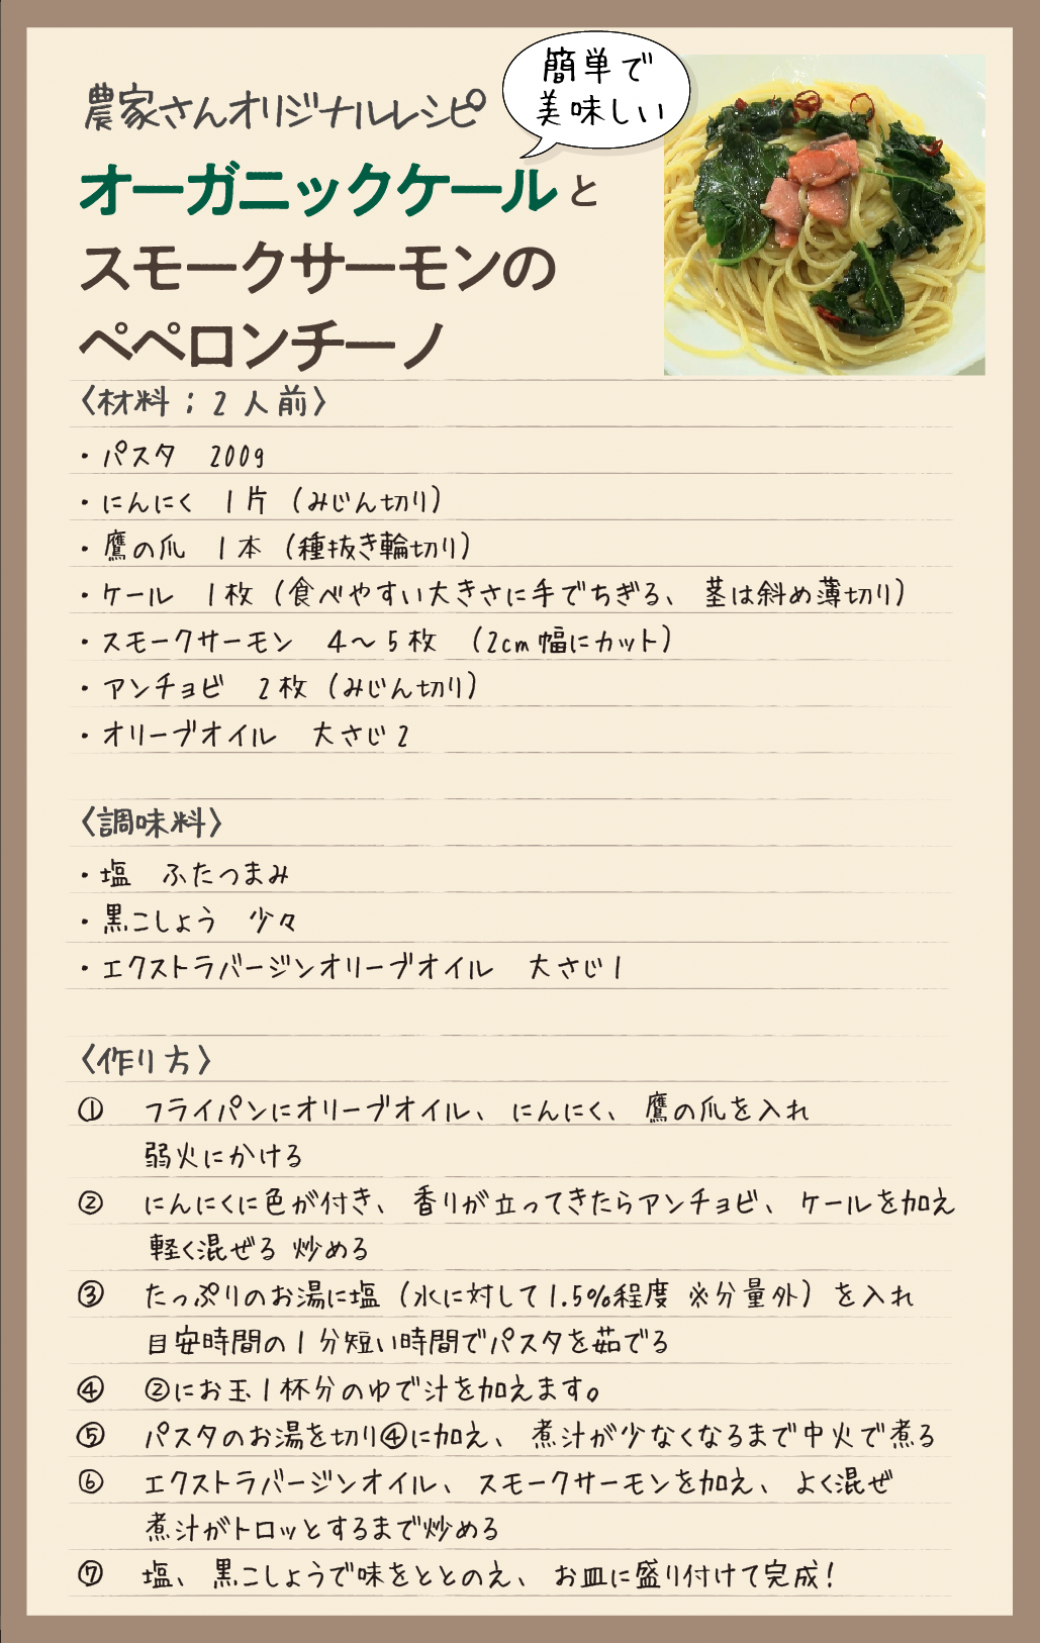 簡単で
美味しい
農家さんオリジナルレシピ
オーガニックケールと
スモークサーモンの
ペペロンチーノ
〈材料；2人前〉
・パスタ　200g
・にんにく　1片（みじん切り）
・鷹の爪　1本（種抜き輪切り）
・ケール　1枚（食べやすい大きさに手でちぎる、茎は斜め薄切り）
・スモークサーモン　4〜5枚　（2cm幅にカット）
・アンチョビ　2枚（みじん切り）
・オリーブオイル　大さじ2
〈調味料〉
・塩　ふたつまみ
・黒こしょう　少々
・エクストラバージンオリーブオイル　大さじ1
〈作り方〉
①　フライパンにオリーブオイル、にんにく、鷹の爪を入れ
弱火にかける
②　にんにくに色が付き、香りが立ってきたらアンチョビ、ケールを加え
軽く混ぜる 炒める
③　たっぷりのお湯に塩（水に対して1.5%程度 ※分量外）を入れ
目安時間の1分短い時間でパスタを茹でる
④　②にお玉1杯分のゆで汁を加えます。
⑤　パスタのお湯を切り④に加え、煮汁が少なくなるまで中火で煮る
⑥　エクストラバージンオイル、スモークサーモンを加え、よく混ぜ
煮汁がトロッとするまで炒める
⑦　塩、黒こしょうで味をととのえ、お皿に盛り付けて完成！